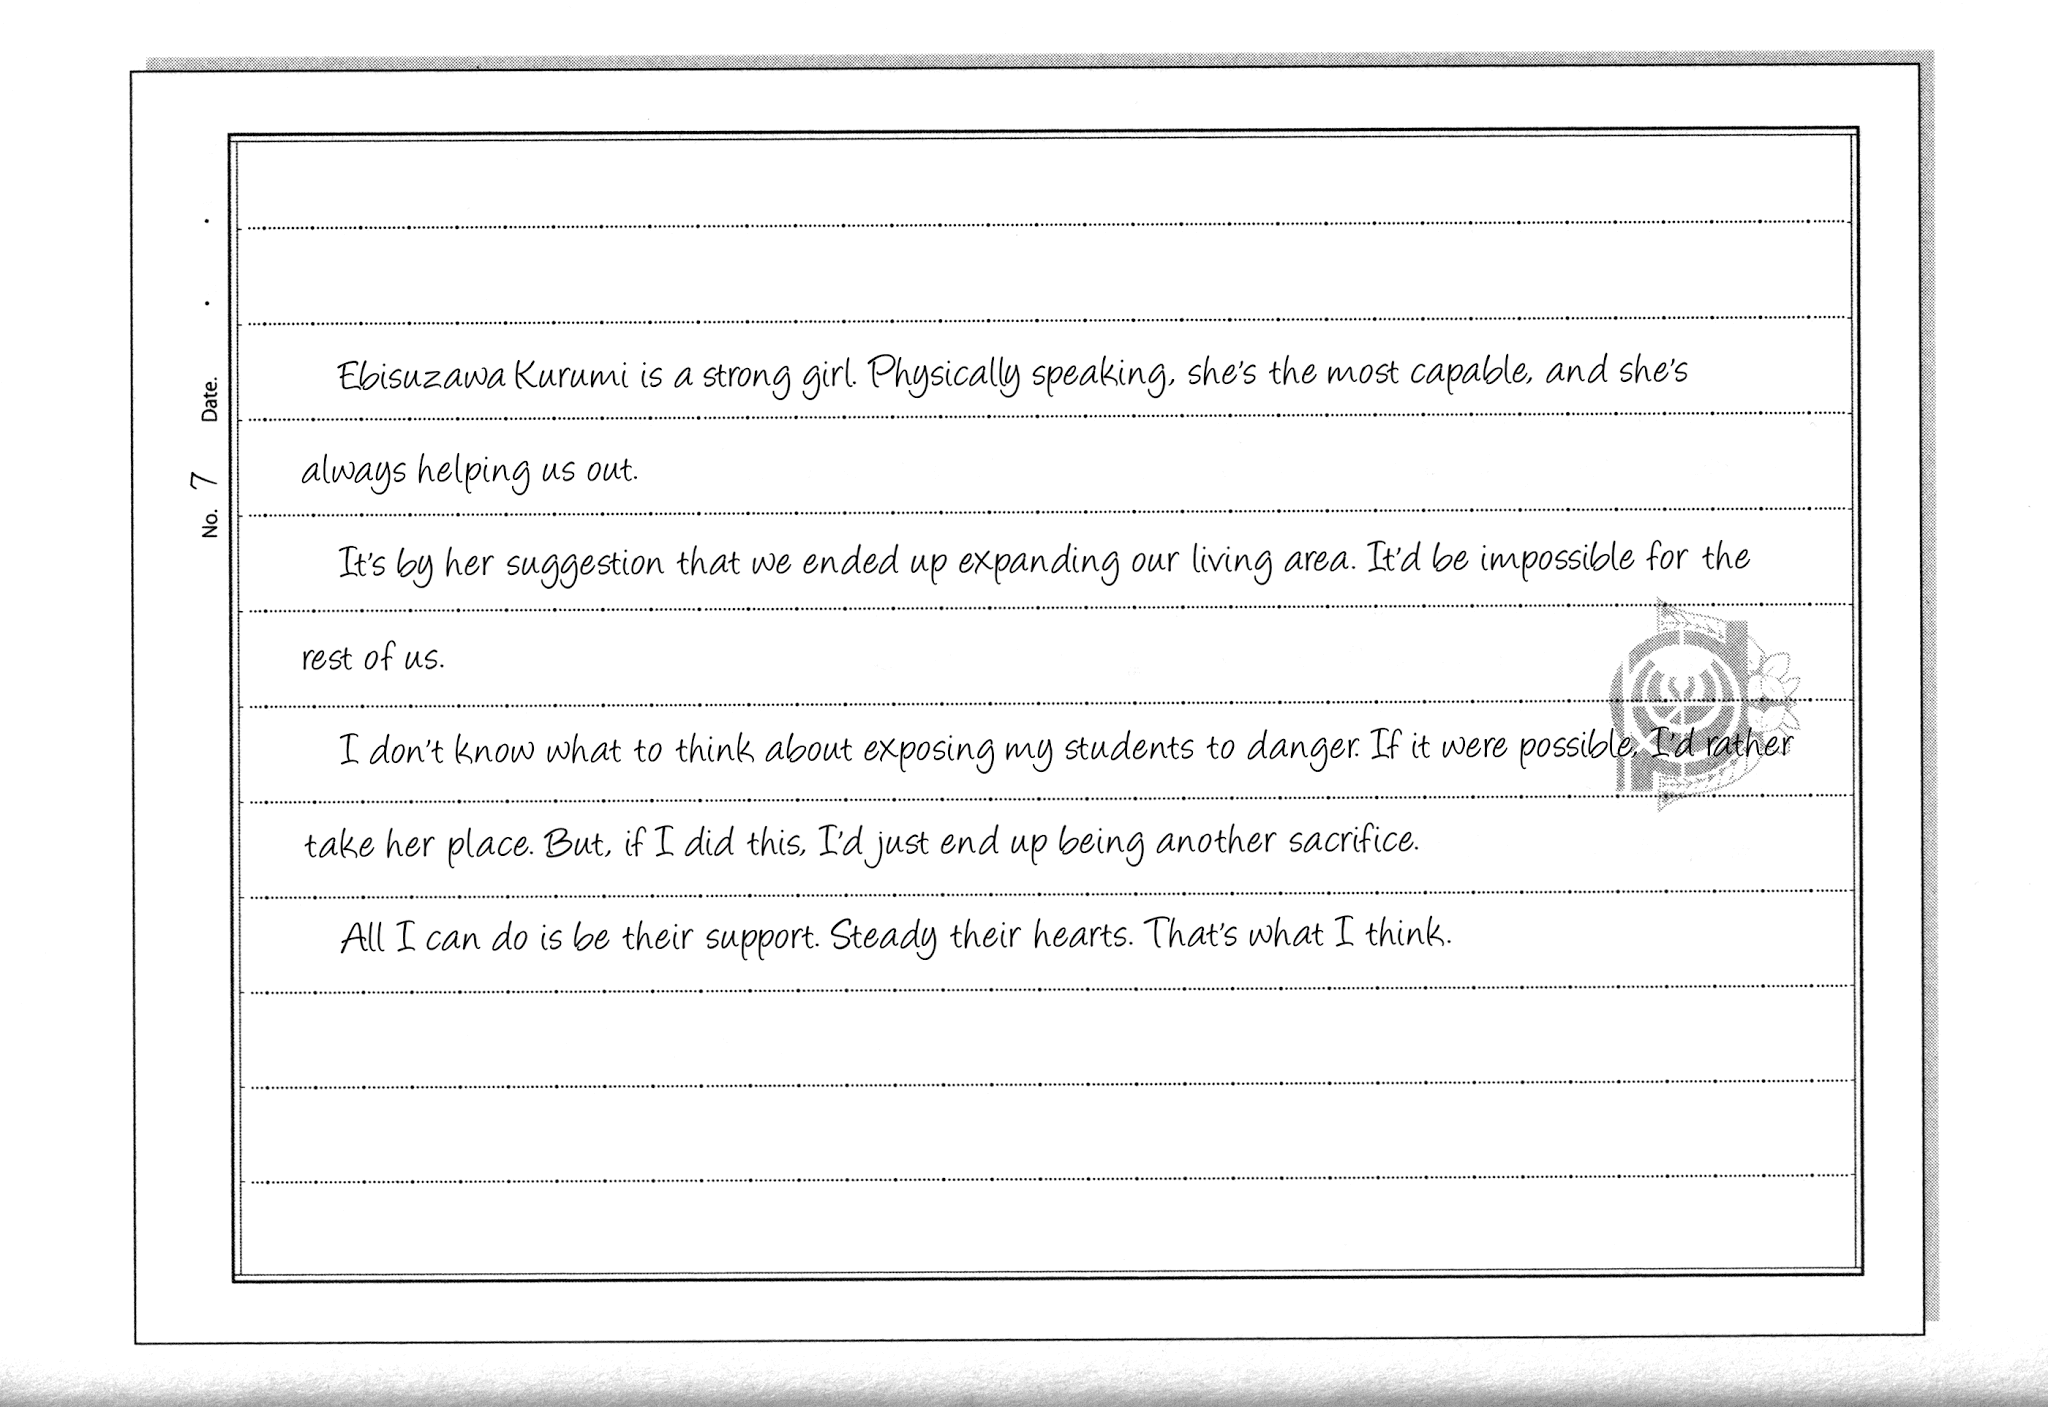 No. 7 Date. . .
Ebisuzawa Kurumi is a strong girl. Physically speaking, she's the most capable, and she's
always helping us out.
It's by her suggestion that we ended up expanding our living area. It'd be impossible for the
rest of us.
I don't know what to think about exposing my students to danger. If it were possible, I'd rather
take her place. But, if I did this, I'd just end up being another sacrifice.
All I can do is be their support. Steady their hearts. That's what I think.